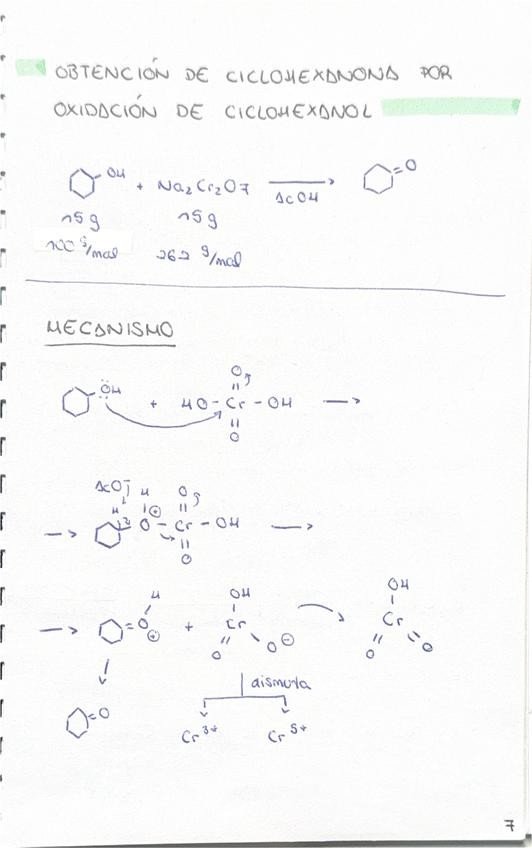 OBTENCIÓN DE CICLOHEXANONA POR
OXIDACIÓN DE CICLOHEXANOL
OH + Na₂Cr₂O7 AcOH → =O
15g 15g
100 g/mol 262 g/mol
MECANISMO
ÖH + HO-Cr-OH →
O
O
AcO⁻ H O
→ H O⊕-Cr-OH →
O
H OH OH
→ =O⊕ + Cr Cr
O O⊖ O O
dismuta
=O
Cr³⁺ Cr⁵⁺
7